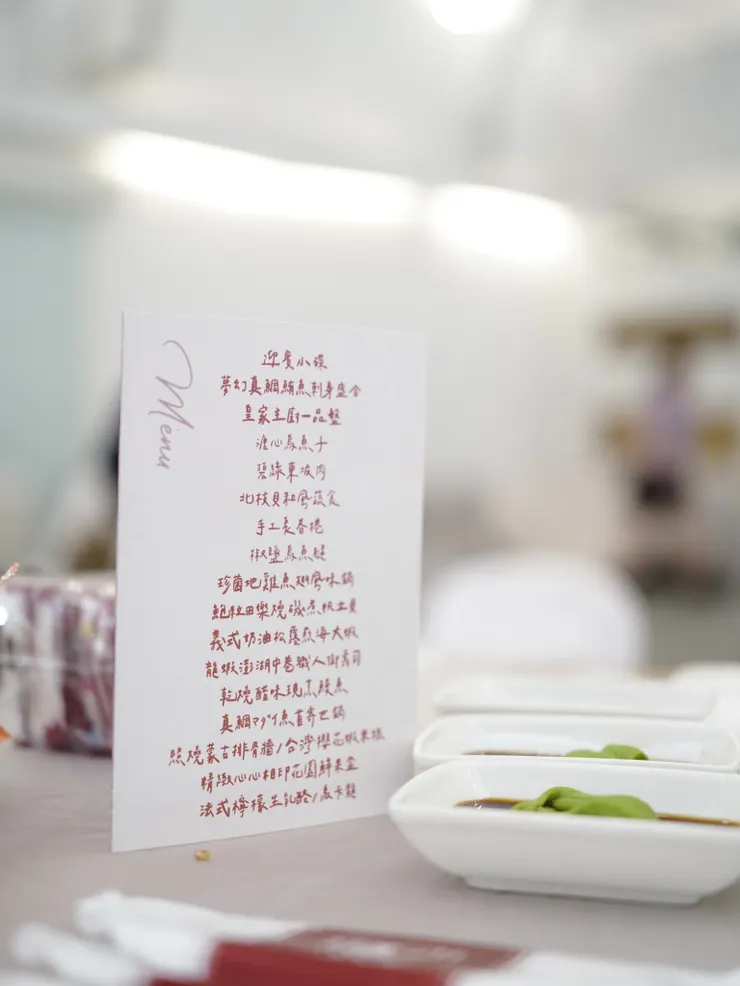 Menu
迎賓小碟
夢幻真鯛鮪魚刺身盛合
皇家主廚一品盤
溏心烏魚子
碧綠東坡肉
北枝貝和風蔬食
手工長香捲
椒鹽烏魚鰾
珍菌地雞魚翅風味鍋
鮑粒田樂燒磯煮帆立貝
義式奶油松露焗海大蝦
龍蝦澎湖中卷職人御壽司
乾燒醋味現蒸鮮魚
真鯛マダイ魚首寄せ鍋
照燒蒙古排骨牆/台灣櫻花蝦米糕
精緻心心相印花園鮮果盆
法式檸檬生乳酪/馬卡龍